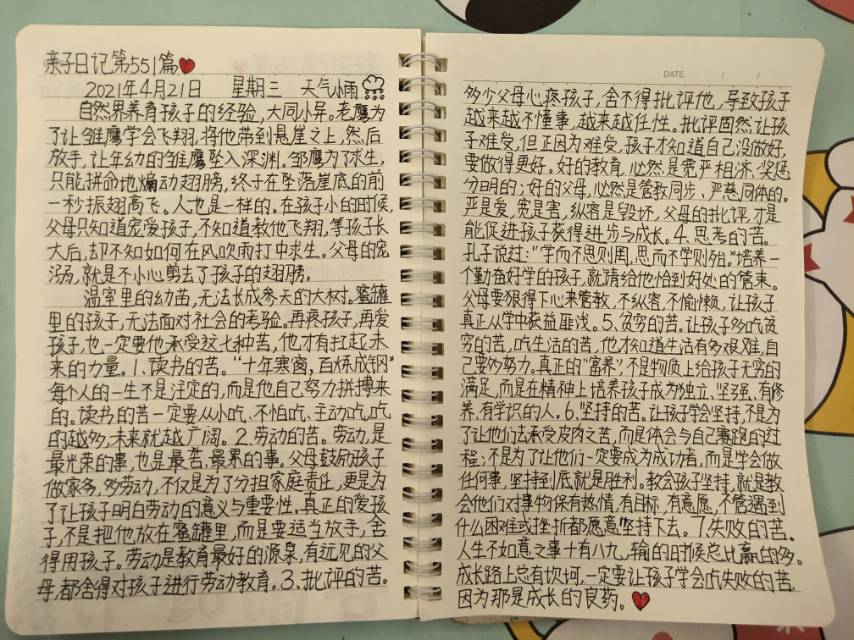 亲子日记第551篇❤
2021年4月21日 星期三 天气小雨
自然界养育孩子的经验,大同小异。老鹰为
了让雏鹰学会飞翔,将他带到悬崖之上,然后
放手,让年幼的雏鹰坠入深渊。邹鹰为了求生,
只能拼命地煽动翅膀,终于在坠落崖底的前
一秒振翅高飞。人也是一样的。在孩子小的时候,
父母只知道宠爱孩子,不知道教他飞翔,等孩子长
大后,却不知如何在风吹雨打中求生。父母的宠
溺,就是不小心剪去了孩子的翅膀。
温室里的幼苗,无法长成参天的大树。蜜罐
里的孩子,无法面对社会的考验。再疼孩子,再爱
孩子,也一定要他承受这七种苦,他才有扛起未
来的力量。1、读书的苦。“十年寒窗,百炼成钢”
每个人的一生不是注定的,而是他自己努力拼搏来
的。读书的苦一定要从小吃、不怕吃、主动吃,吃
的越多,未来就越广阔。2.劳动的苦。劳动,是
最光荣的事,也是最苦、最累的事。父母鼓励孩子
做家务,多劳动,不仅是为了分担家庭责任,更是为
了让孩子明白劳动的意义与重要性。真正的爱孩
子,不是把他放在蜜罐里,而是要适当放手,舍
得用孩子。劳动是教育最好的源泉,有远见的父
母,都舍得对孩子进行劳动教育。3.批评的苦。
DATE / /
多少父母心疼孩子,舍不得批评他,导致孩子
越来越不懂事,越来越任性。批评固然让孩
子难受,但正因为难受,孩子才知道自己没做好,
要做得更好。好的教育,必然是宽严相济、奖惩
分明的;好的父母,必然是管教同步、严慈同体的。
严是爱,宽是害,纵容是毁坏,父母的批评,才是
能促进孩子获得进步与成长。4.思考的苦。
孔子说过:“学而不思则罔,思而不学则殆。”培养一
个勤奋好学的孩子,就请给他恰到好处的管束。
父母要狠得下心来管教,不纵容,不偷懒,让孩子
真正从学中获益匪浅。5、贫穷的苦。让孩子多吃贫
穷的苦,吃生活的苦,他才知道生活有多艰难,自
己要多努力。真正的“富养”不是物质上给孩子无穷的
满足,而是在精神上培养孩子成为独立、坚强、有修
养、有学识的人。6.坚持的苦。让孩子学会坚持,不是为
了让他们去承受皮肉之苦,而是体会与自己赛跑的过
程;不是为了让他们一定要成为成功者,而是学会做
任何事,坚持到底就是胜利。教会孩子坚持,就是教
会他们对事物保有热情,有目标,有意愿,不管遇到
什么困难或挫折都愿意坚持下去。7.失败的苦。
人生不如意之事十有八九,输的时候总比赢的多。
成长路上总有坎坷,一定要让孩子学会吃失败的苦,
因为那是成长的良药。❤